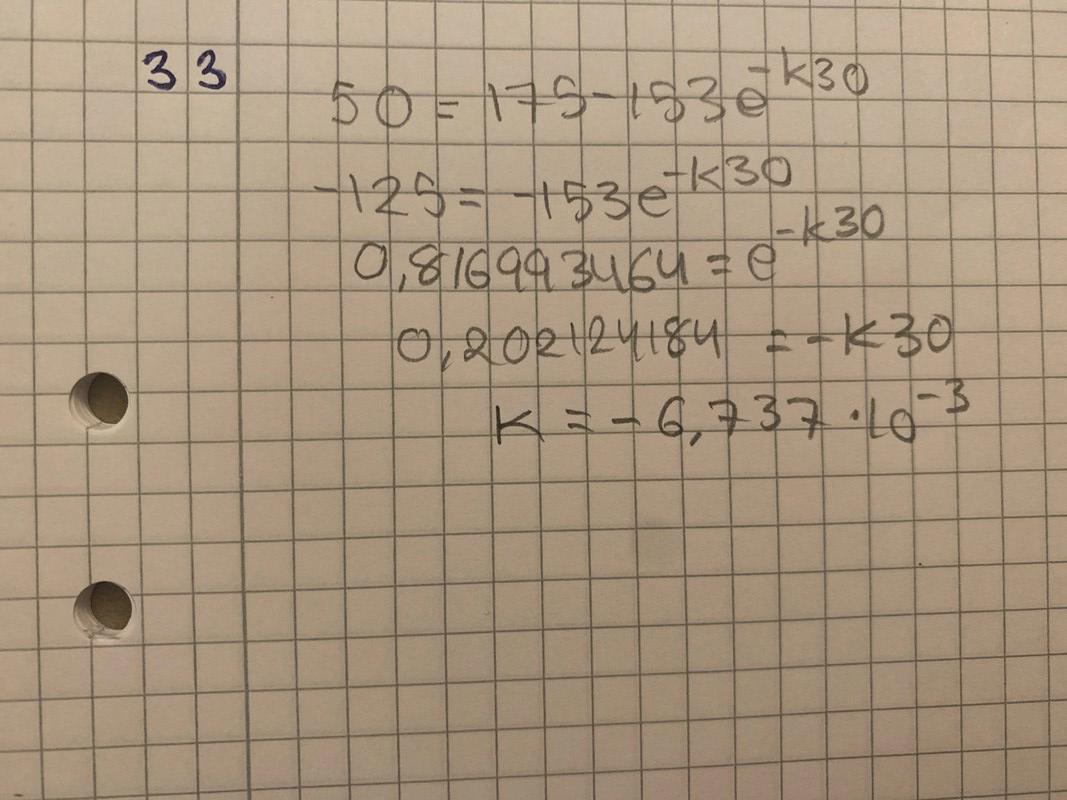 33
50 = 175 - 153e^{-k30}
-125 = -153e^{-k30}
0,816993464 = e^{-k30}
0,202124184 = -k30
k = -6,737 · 10^{-3}